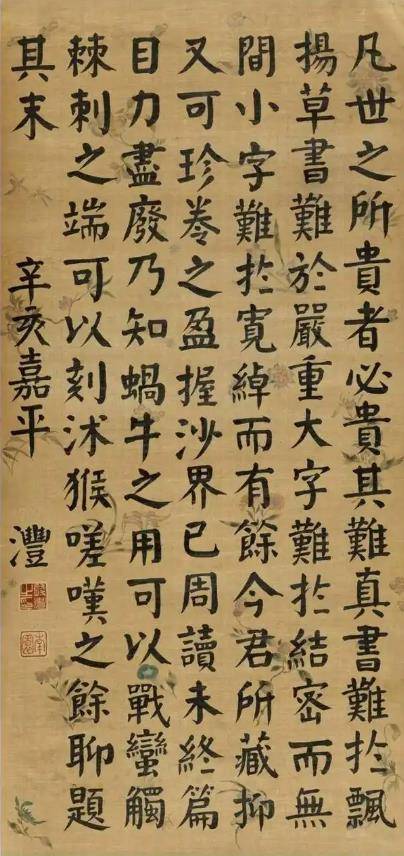 凡世之所貴者必貴其難真書難扵飄
揚草書難於嚴重大字難扵結密而無
間小字難扵寛綽而有餘今君所藏抑
又可珍卷之盈握沙界已周讀未終篇
目力盡廢乃知蝸牛之用可以戰蠻觸
棘刺之端可以刻沭猴嗟嘆之餘聊題
其末 辛亥嘉平 灃